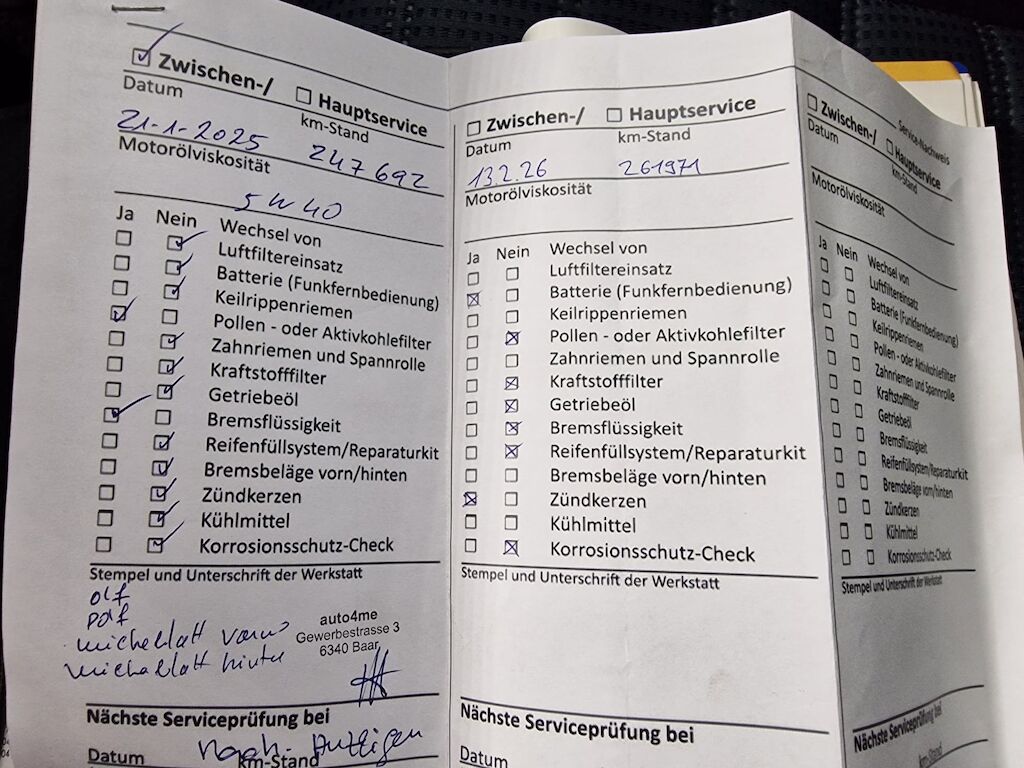 Zwischen-/
Hauptservice
Datum
km-Stand
21-1-2025
247 692
Motorölviskosität
5 W 40
Ja Nein Wechsel von
Luftfiltereinsatz
Batterie (Funkfernbedienung)
Keilrippenriemen
Pollen - oder Aktivkohlefilter
Zahnriemen und Spannrolle
Kraftstofffilter
Getriebeöl
Bremsflüssigkeit
Reifenfüllsystem/Reparaturkit
Bremsbeläge vorn/hinten
Zündkerzen
Kühlmittel
Korrosionsschutz-Check
Stempel und Unterschrift der Werkstatt
olf
polf
auto4me
Gewerbestrasse 3
6340 Baar
Nächste Serviceprüfung bei
Datum
km-Stand
Nach Anzeigen
Zwischen-/
Hauptservice
Datum
km-Stand
13.2.26
261971
Motorölviskosität
Ja Nein Wechsel von
Luftfiltereinsatz
Batterie (Funkfernbedienung)
Keilrippenriemen
Pollen - oder Aktivkohlefilter
Zahnriemen und Spannrolle
Kraftstofffilter
Getriebeöl
Bremsflüssigkeit
Reifenfüllsystem/Reparaturkit
Bremsbeläge vorn/hinten
Zündkerzen
Kühlmittel
Korrosionsschutz-Check
Stempel und Unterschrift der Werkstatt
Nächste Serviceprüfung bei
Datum
Service-Nachweis
Zwischen-/
Hauptservice
Datum
km-Stand
Motorölviskosität
Ja Nein Wechsel von
Luftfiltereinsatz
Batterie (Funkfernbedienung)
Keilrippenriemen
Pollen - oder Aktivkohlefilter
Zahnriemen und Spannrolle
Kraftstofffilter
Getriebeöl
Bremsflüssigkeit
Reifenfüllsystem/Reparaturkit
Bremsbeläge vorn/hinten
Zündkerzen
Kühlmittel
Korrosionsschutz-Check
Stempel und Unterschrift der Werkstatt
Nächste Serviceprüfung bei
Datum